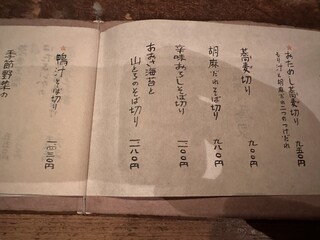 おためし蕎麦切り
もり汁と胡麻だれの二つのつけだれ
九五〇円
蕎麦切り
七〇〇円
胡麻だれそば切り
九八〇円
辛味おろしそば切り
一一〇〇円
あおさ海苔と
山とろのそば切り
一二八〇円
鴨汁そば切り
一四三〇円
季節野菜の